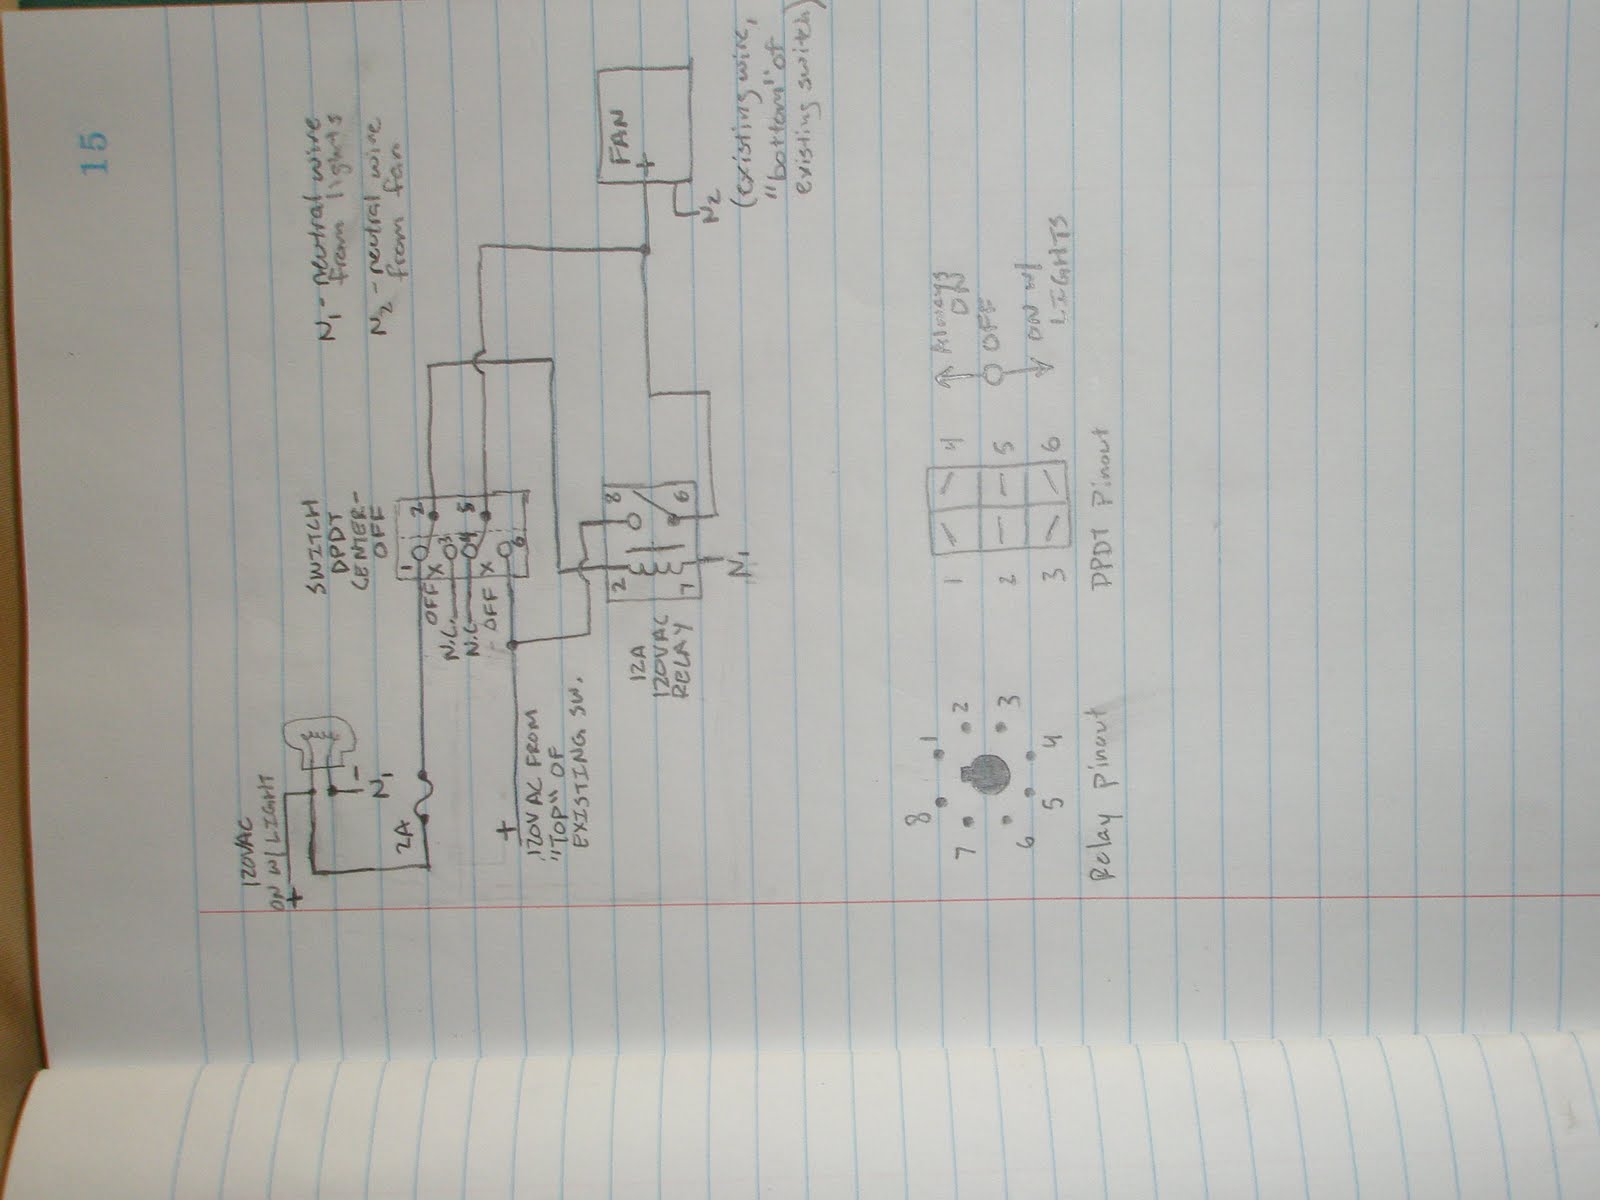 15
N1 - neutral wire
from lights
N2 - neutral wire
from fan
120VAC
ON W/LIGHT
+
-
N1
2A
SWITCH
DPDT
CENTER-
OFF
1
2
OFF X
N.C.
3
N.C.
4
5
OFF X
6
+
120VAC FROM
"TOP" OF
EXISTING SW.
12A
120VAC
RELAY
2
8
7
6
N1
FAN
+
N2
(existing wire,
"bottom" of
existing switch)
8
1
2
7
3
6
5
4
Relay Pinout
1
4
2
5
3
6
DPDT Pinout
Always
ON
OFF
ON W/
LIGHTS